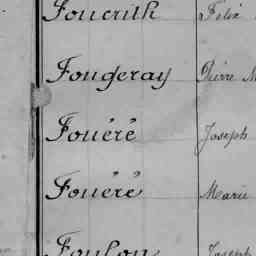 Foucrith Félix
Fougeray Pierre M
Fouéré Joseph
Fouéré Marie
Foulon Joseph